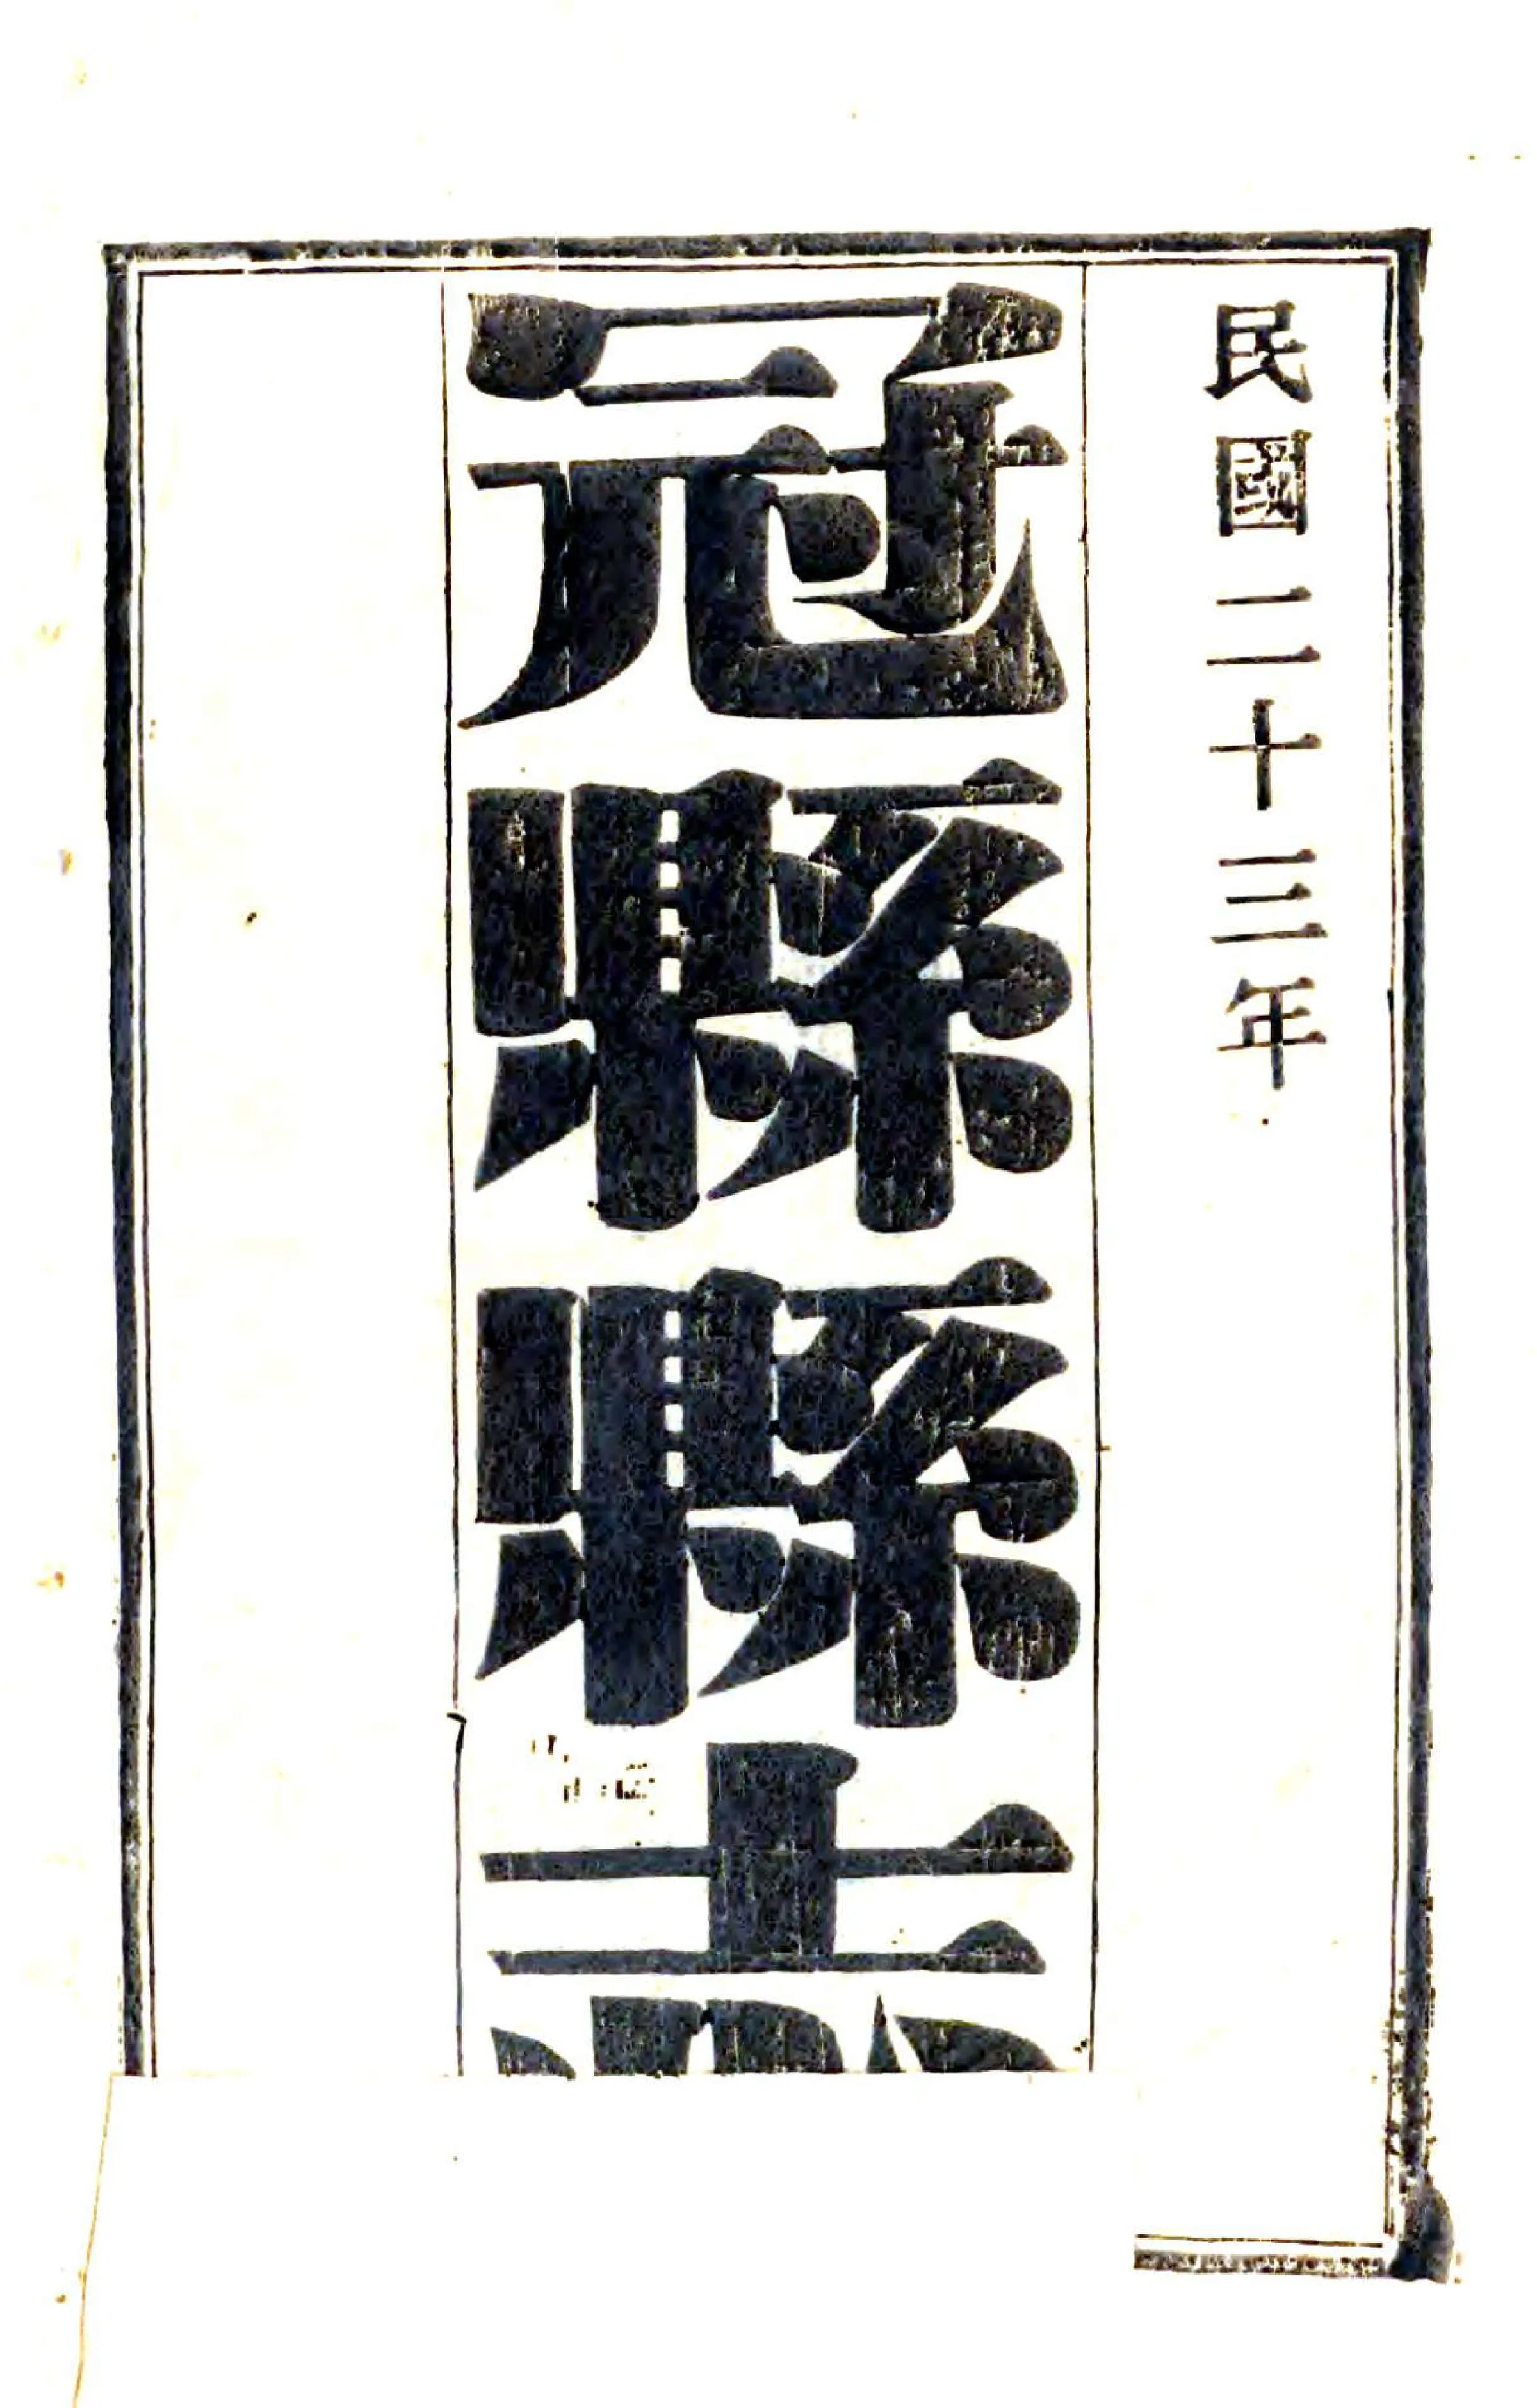 民國二十三年
冠縣縣志